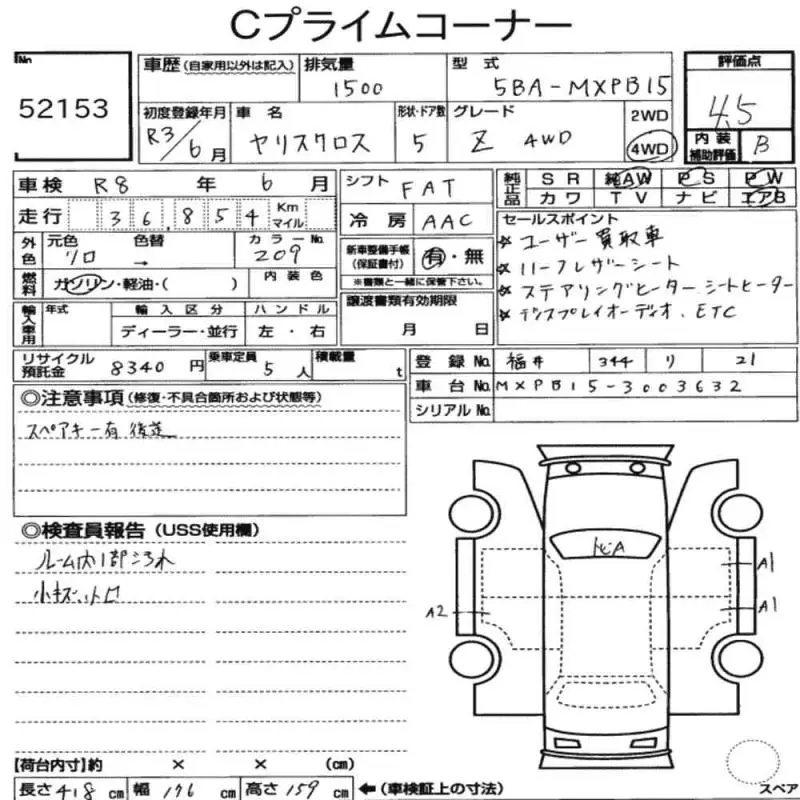 Cプライムコーナー
No
52153
車歴 (自家用以外は記入)
排気量
1500
型式
5BA-MXPB15
評価点
4.5
内装補助評価
B
初度登録年月
R3/6月
車名
ヤリスクロス
形状・ドア数
5
グレード
Z 4WD
2WD
4WD
車検 R8年6月
走行 36,854 Km マイル
外色 元色 色替 カラーNo.
クロ → 209
燃料 ガソリン・軽油・( )
内装色
輸入車用 年式 輸入区分 ハンドル
ディーラー・並行 左・右
リサイクル預託金 8340円
乗車定員 5人
積載量 t
シフト FAT
冷房 AAC
新車整備手帳(保証書付) 有・無
※書類と一緒に保管下さい。
譲渡書類有効期限
月 日
純正品 SR 純AW PS PW
カワ TV ナビ エアB
セールスポイント
☆ユーザー買取車
☆ハーフレザーシート
☆ステアリングヒーター シートヒーター
☆ディスプレイオーディオ、ETC
登録No. 福井 344 リ 21
車台No. MXPB15-3003632
シリアルNo.
◎注意事項 (修復・不具合箇所および状態等)
スペアキー有 後送
◎検査員報告 (USS使用欄)
ルーム内1部汚れ
小キズ、トビ
A
A1
A1
A2
【荷台内寸】約 × × (cm)
長さ 418 cm 幅 176 cm 高さ 159 cm
←(車検証上の寸法)
スペア